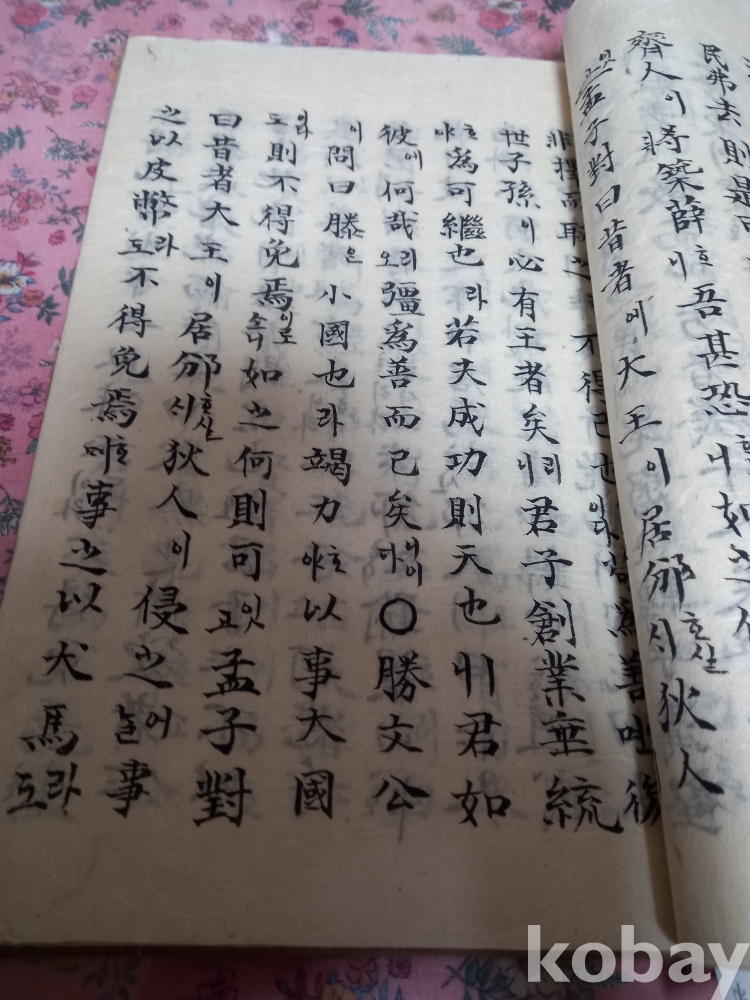 民弗去則是
齊人이 將築薛호니 吾甚恐호니 如之
잇고 孟子對曰昔者에 大王이 居邠호실시 狄人
非擇而取之 不得已也이다 苟爲善 後
世子孫이 必有王者矣리니 君子創業垂統
호야 爲可繼也라 若夫成功則天也니 君如
彼에 何哉리오 彊爲善而已矣니이다 ○ 勝文公
이 問曰滕은 小國也라 竭力호야 以事大國
이라도 則不得免焉이로소니 如之何則可잇고 孟子對
曰昔者大王이 居邠호실시 狄人이 侵之어늘 事
之以皮幣라도 不得免焉호며 事之以犬馬라도
kobay